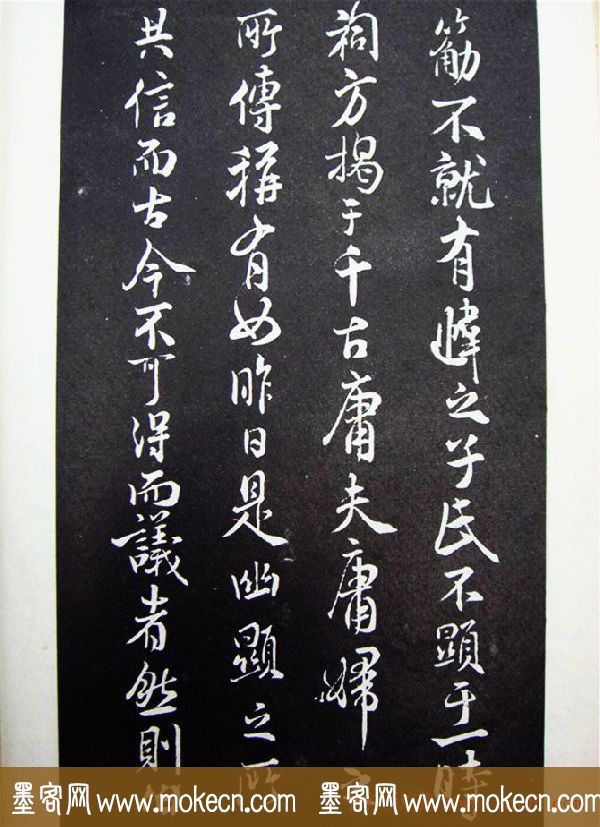 不就有之民不顯于一時
祠方揭于千古庸夫庸婦
所傳稱有如昨日是幽顯之所
共信而古今不可得而議者然則
墨客网 www.mokecn.com 墨客网 www.mokecn.com